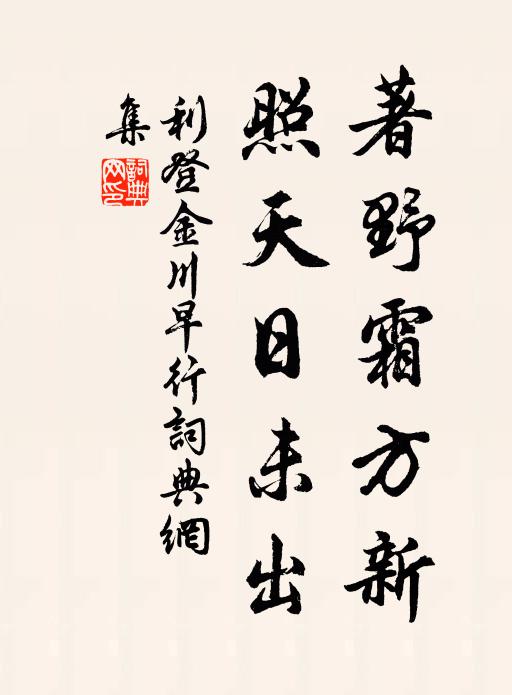 著野霜方新
照天日未出
利登金川早行詞典網
集
詞典
网印